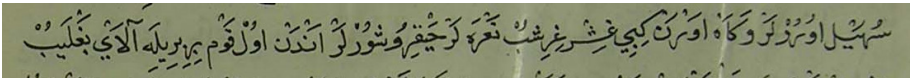 سُهَيْل اوُرُرْلَرْ وَكَاهْ اوَرَنْ كِبِي غِشْرِغِرِشُبْ نَعْرَه لَرْ حَيْقِرُوشُورْلَرْ اَنْدَنْ اوُلْ قَوْم بِرِبِرِيلَه آلَايْ بَغْلَيُبْ